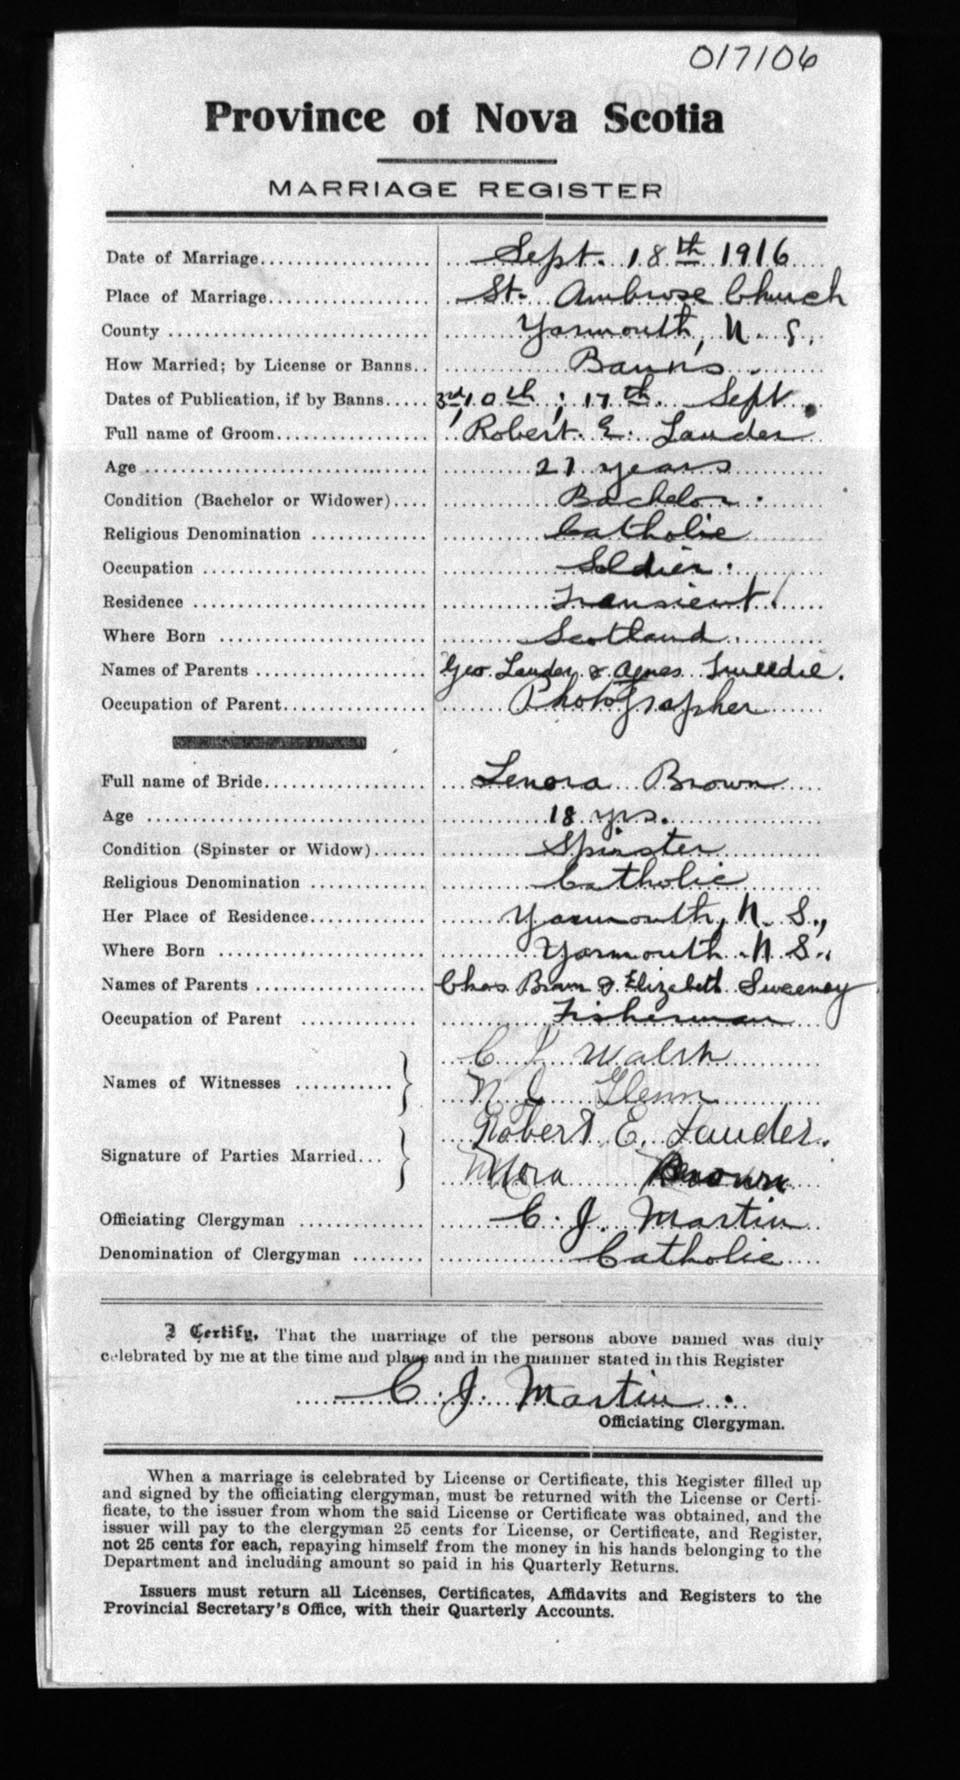 017106
Province of Nova Scotia
MARRIAGE REGISTER
Date of Marriage.................... Sept. 18th 1916
Place of Marriage................... St. Ambrose Church
County .............................. Yarmouth, N. S.,
How Married; by License or Banns.. Banns.
Dates of Publication, if by Banns..... 3rd, 10th; 17th. Sept.
Full name of Groom.................. Robert. E. Lauder
Age .................................. 27 years
Condition (Bachelor or Widower).... Bachelor.
Religious Denomination ............. Catholic
Occupation .......................... Soldier.
Residence ........................... Transient.
Where Born ........................ Scotland.
Names of Parents .................... Geo. Lauder & Agnes Tweedie.
Occupation of Parent................. Photographer
Full name of Bride................... Lenora Brown
Age ................................. 18 yrs.
Condition (Spinster or Widow)...... Spinster
Religious Denomination ............. Catholic
Her Place of Residence.............. Yarmouth, N. S.,
Where Born ........................ Yarmouth N. S.,
Names of Parents .................... Chas Brown & Elizabeth Sweeney
Occupation of Parent ............... Fisherman
C Walsh
Names of Witnesses ...........
N Glenn
Robert E. Lauder.
Signature of Parties Married...
Brown
Officiating Clergyman ............... C. J. Martin
Denomination of Clergyman ........ Catholic
I Certify, That the marriage of the persons above named was duly
celebrated by me at the time and place and in the manner stated in this Register
C. J. Martin.
Officiating Clergyman.
When a marriage is celebrated by License or Certificate, this Register filled up
and signed by the officiating clergyman, must be returned with the License or Certi-
ficate, to the issuer from whom the said License or Certificate was obtained, and the
issuer will pay to the clergyman 25 cents for License, or Certificate, and Register,
not 25 cents for each, repaying himself from the money in his hands belonging to the
Department and including amount so paid in his Quarterly Returns.
Issuers must return all Licenses, Certificates, Affidavits and Registers to the
Provincial Secretary's Office, with their Quarterly Accounts.